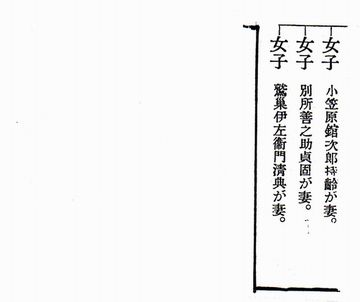 女子 小笠原錧次郎持齡が妻。
女子 別所善之助貞固が妻。
女子 鷲巢伊左衞門淸典が妻。